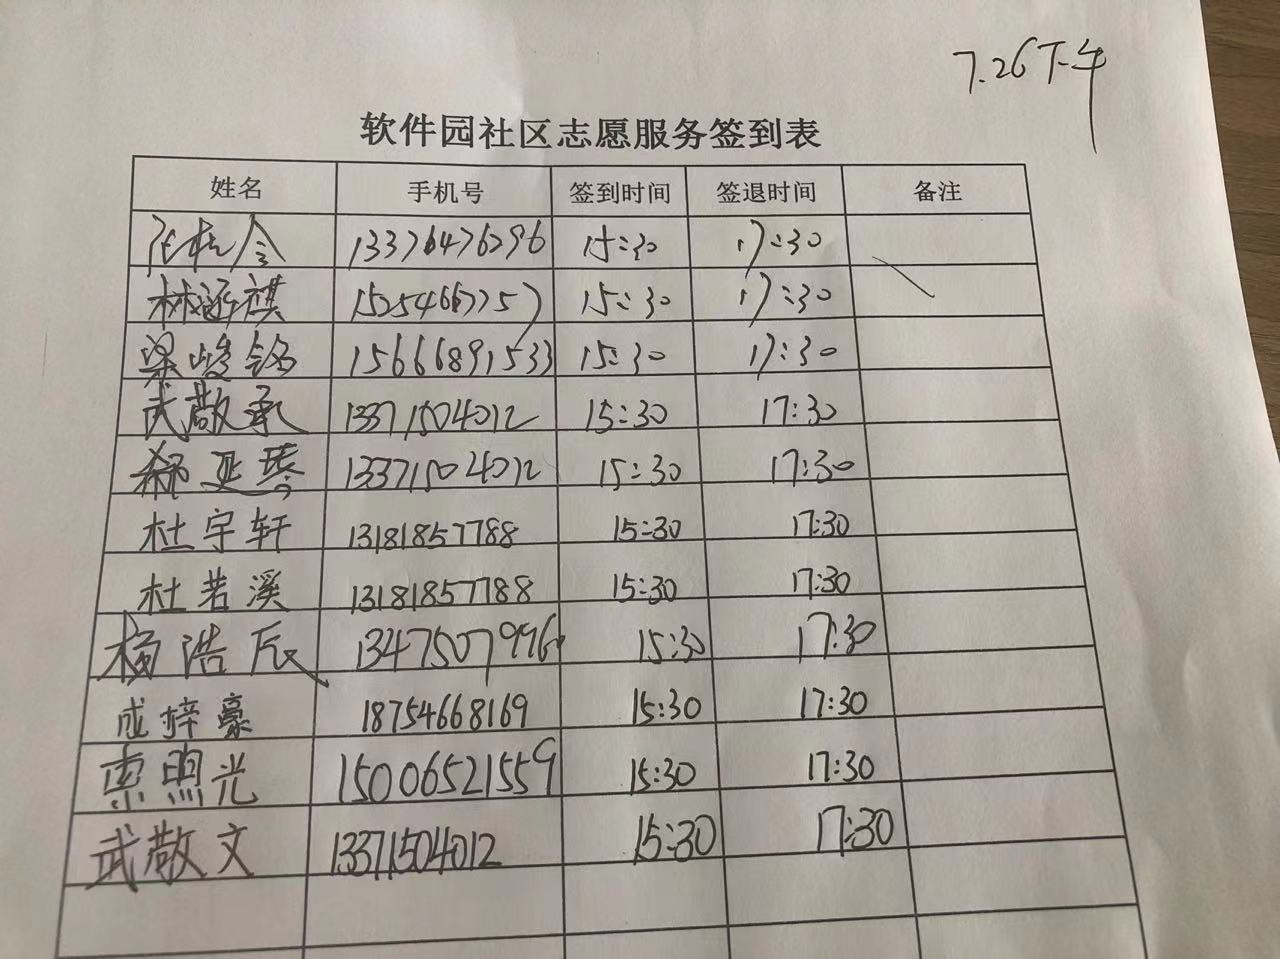 7.26下午
软件园社区志愿服务签到表
姓名 手机号 签到时间 签退时间 备注
13376476296 15:30 17:30
林逐祺 15254667757 15:30 17:30
梁峻铭 15666891533 15:30 17:30
武敬承 13371504012 15:30 17:30
郝亚琴 13371504012 15:30 17:30
杜宇轩 13181857788 15:30 17:30
杜若溪 13181857788 15:30 17:30
杨浩辰 13475079960 15:30 17:30
成梓豪 18754668169 15:30 17:30
索照光 15006521559 15:30 17:30
武敬文 13371504012 15:30 17:30